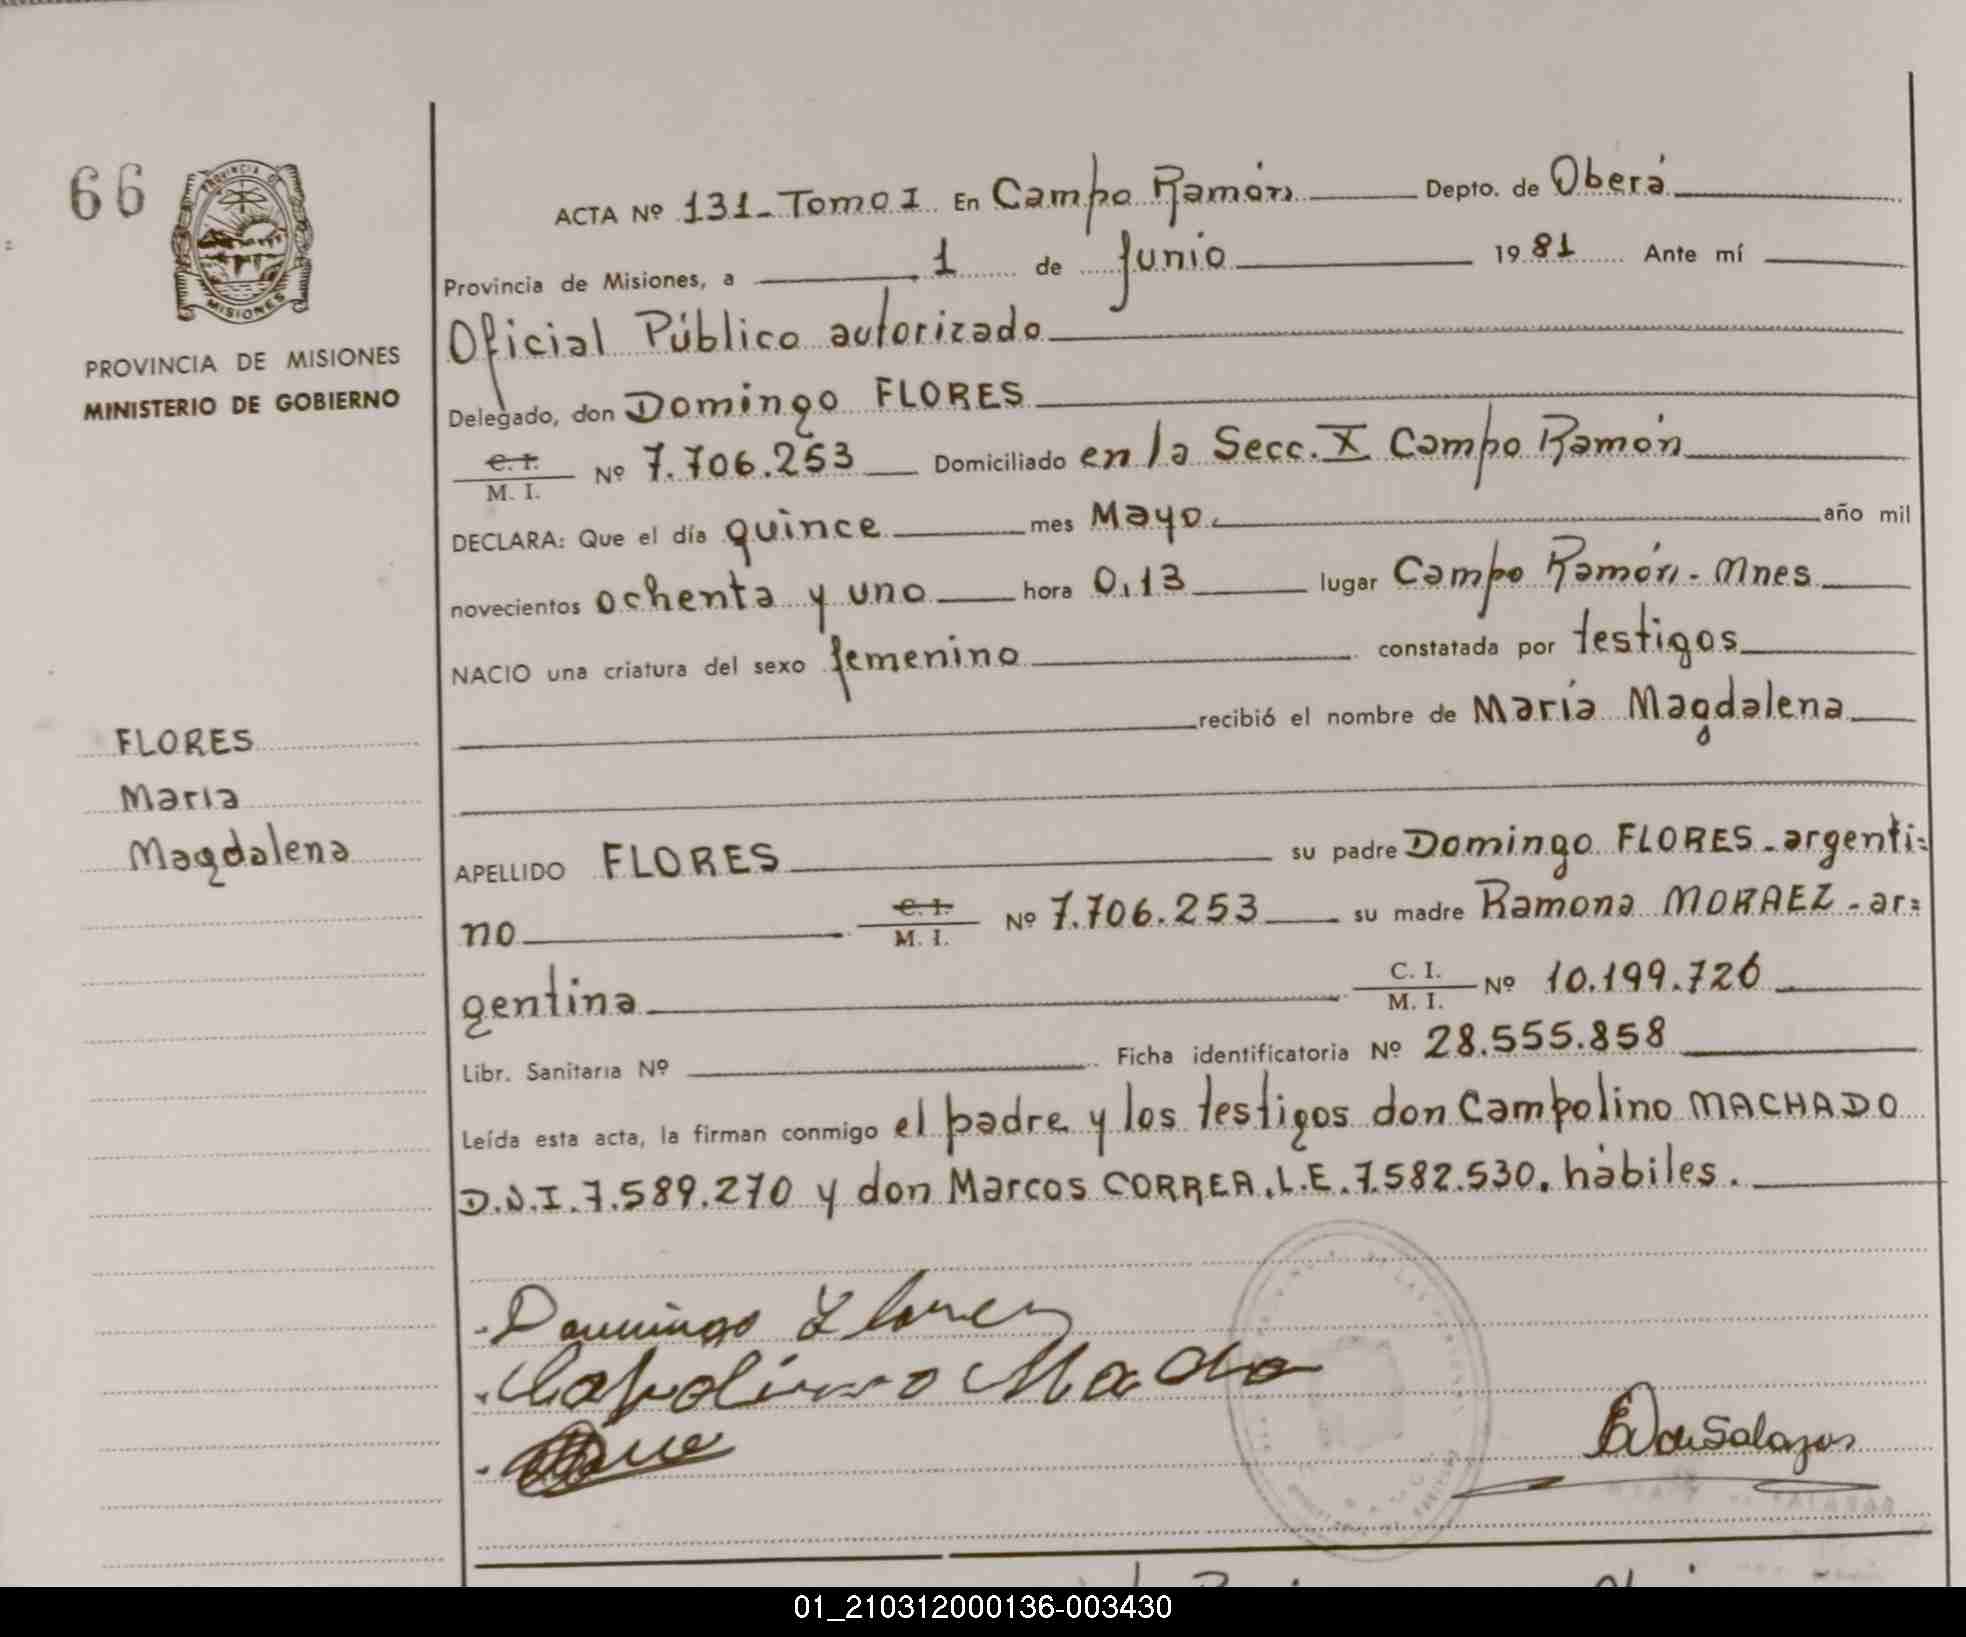 66
PROVINCIA DE
MISIONES
PROVINCIA DE MISIONES
MINISTERIO DE GOBIERNO
FLORES
Maria
Magdalena
ACTA Nº 131-Tomo I En Campo Ramón Depto. de Oberá
Provincia de Misiones, a 1 de Junio 1981 Ante mí
Oficial Público autorizado
Delegado, don Domingo FLORES
C. I.
M. I. Nº 7.706.253 Domiciliado en la Secc. X Campo Ramón
DECLARA: Que el día quince mes Mayo. año mil
novecientos ochenta y uno hora 0,13 lugar Campo Ramón - Mnes
NACIO una criatura del sexo femenino constatada por testigos
recibió el nombre de María Magdalena
APELLIDO FLORES su padre Domingo FLORES - argenti=
no C. I.
M. I. Nº 7.706.253 su madre Ramona MORAEZ - ar=
gentina C. I.
M. I. Nº 10.199.726
Libr. Sanitaria Nº Ficha identificatoria Nº 28.555.858
Leída esta acta, la firman conmigo el padre y los testigos don Campolino MACHADO
D.N.I. 7.589.270 y don Marcos CORREA. L.E. 7.582.530. hábiles.
Domingo Flores
01_210312000136-003430